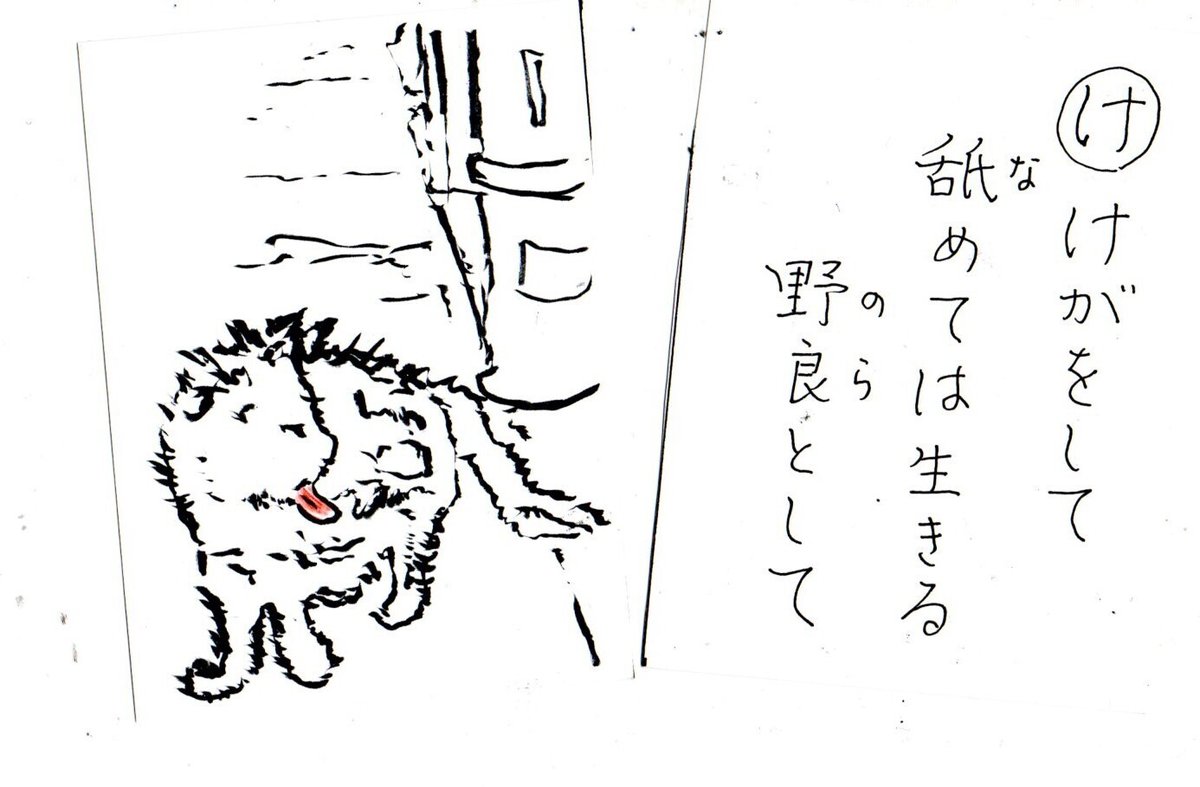 け
けがをして
舐めては生きる
な
野良として
のら